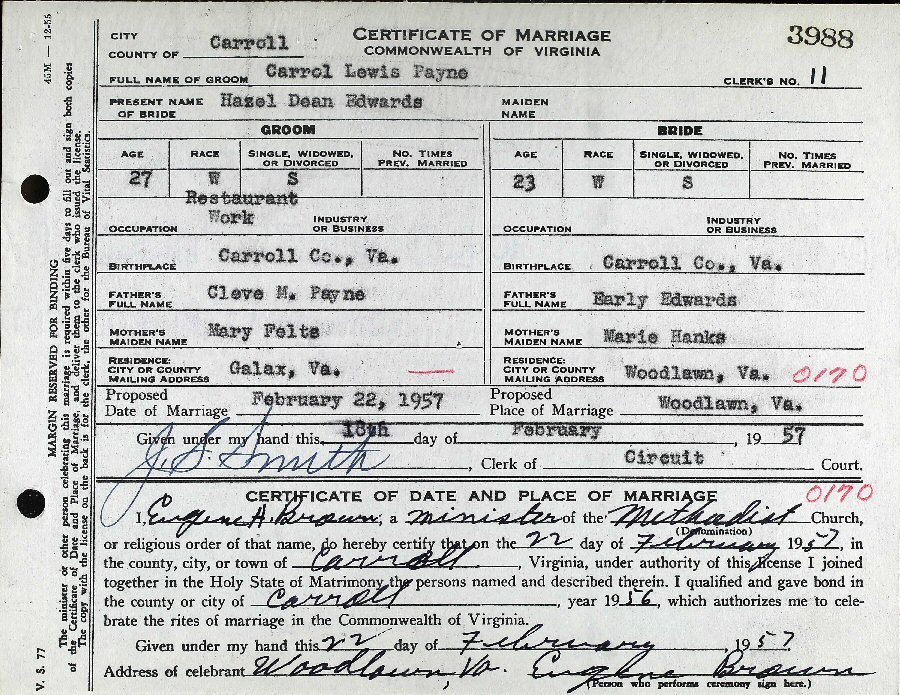 45M — 12-55
MARGIN RESERVED FOR BINDING
The minister or other person celebrating this marriage is required within five days to fill out and sign both copies
of the Certificate of Date and Place of Marriage, and deliver them to the clerk who issued the license.
The copy with the license on the back is for the clerk, the other for the Bureau of Vital Statistics.
V. S. 77
CITY
COUNTY OF Carroll
CERTIFICATE OF MARRIAGE
COMMONWEALTH OF VIRGINIA
3988
FULL NAME OF GROOM Carrol Lewis Payne
CLERK'S NO. 11
PRESENT NAME OF BRIDE Hazel Dean Edwards
MAIDEN NAME
GROOM BRIDE
AGE RACE SINGLE, WIDOWED, OR DIVORCED NO. TIMES PREV. MARRIED AGE RACE SINGLE, WIDOWED, OR DIVORCED NO. TIMES PREV. MARRIED
27 W S 23 W S
Restaurant
Work
OCCUPATION INDUSTRY OR BUSINESS OCCUPATION INDUSTRY OR BUSINESS
BIRTHPLACE Carroll Co., Va. BIRTHPLACE Carroll Co., Va.
FATHER'S FULL NAME Cleve M. Payne FATHER'S FULL NAME Early Edwards
MOTHER'S MAIDEN NAME Mary Felts MOTHER'S MAIDEN NAME Marie Hanks
RESIDENCE: CITY OR COUNTY MAILING ADDRESS Galax, Va. — RESIDENCE: CITY OR COUNTY MAILING ADDRESS Woodlawn, Va. 0170
Proposed Date of Marriage February 22, 1957 Proposed Place of Marriage Woodlawn, Va.
Given under my hand this 18th day of February, 1957
J. S. Smith, Clerk of Circuit Court.
CERTIFICATE OF DATE AND PLACE OF MARRIAGE 0170
I, Eugene H. Brown, a minister of the Methodist Church,
(Denomination)
or religious order of that name, do hereby certify that on the 22 day of February 1957, in
the county, city, or town of Carroll, Virginia, under authority of this license I joined
together in the Holy State of Matrimony the persons named and described therein. I qualified and gave bond in
the county or city of Carroll, year 1956, which authorizes me to cele-
brate the rites of marriage in the Commonwealth of Virginia.
Given under my hand this 22 day of February, 1957
Address of celebrant Woodlawn, Va Eugene Brown
(Person who performs ceremony sign here.)